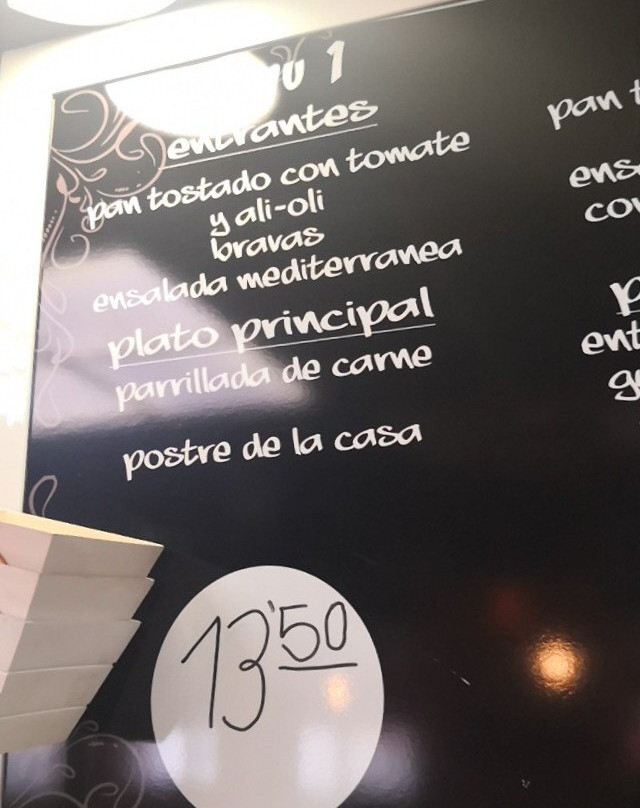 1
entrantes
pan tostado con tomate
y ali-oli
bravas
ensalada mediterranea
plato principal
parrillada de carne
postre de la casa
13'50
pan t
ens
co
p
ent
g